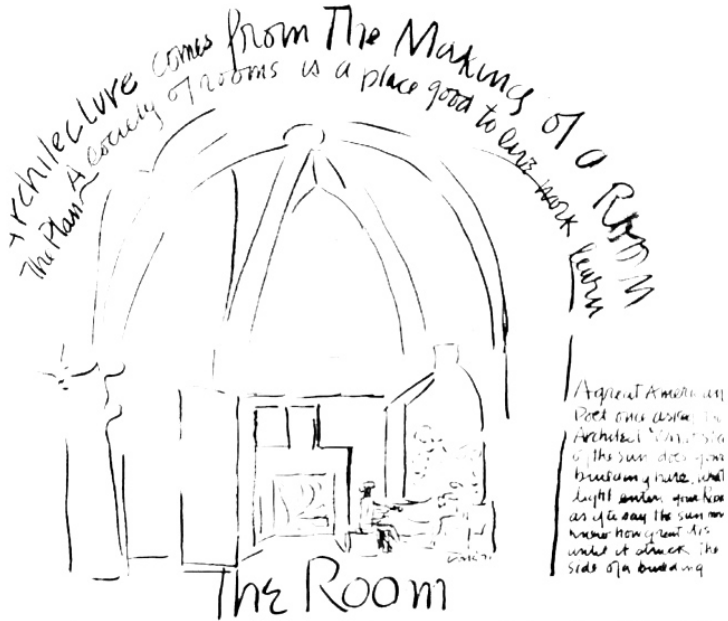 Architecture comes from The Making of a Room
The Plan A society of rooms is a place good to live work learn
A great American
Poet once asked the
Architect
of the sun does your
building have, what
light enters your Room
as if to say the sun
knew how great it is
until it struck the
side of a building
The Room